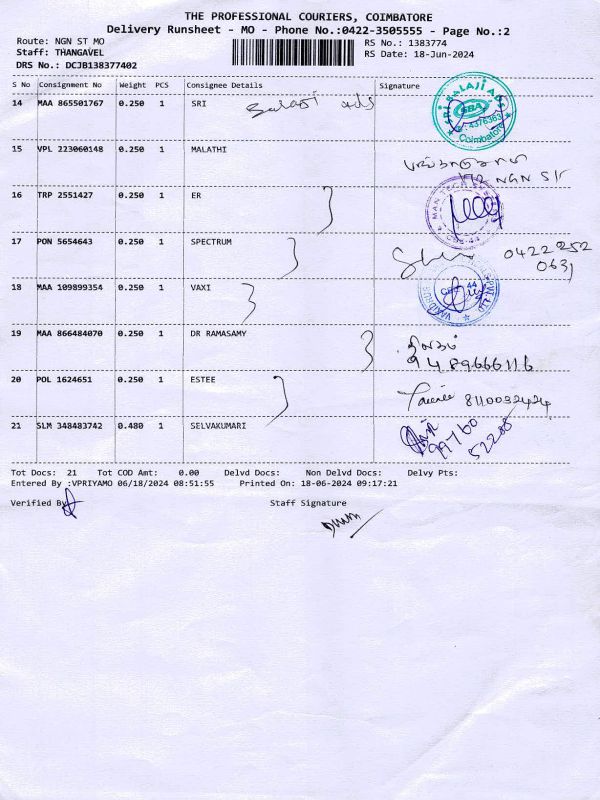 THE PROFESSIONAL COURIERS, COIMBATORE
Delivery Runsheet - MO - Phone No.:0422-3505555 - Page No.:2
Route: NGN ST MO
RS No.: 1383774
Staff: THANGAVEL
RS Date: 18-Jun-2024
DRS No.: DCJB138377402
S No Consignment No Weight PCS Consignee Details Signature
14 MAA 865501767 0.250 1 SRI Balaji ads
SRI BALAJI ADS
SBA
4376363
Coimbatore
15 VPL 223060148 0.250 1 MALATHI
172 NGN St
16 TRP 2551427 0.250 1 ER
MAN TECH
CBE-44
17 PON 5654643 0.250 1 SPECTRUM
0422 252
0631
18 MAA 109899354 0.250 1 VAXI
PVT LTD
19 MAA 866484070 0.250 1 DR RAMASAMY
9489666116
20 POL 1624651 0.250 1 ESTEE
8110032424
21 SLM 348483742 0.480 1 SELVAKUMARI
99760
52288
Tot Docs: 21 Tot COD Amt: 0.00 Delvd Docs: Non Delvd Docs: Delvy Pts:
Entered By :VPRIYAMO 06/18/2024 08:51:55 Printed On: 18-06-2024 09:17:21
Verified By
Staff Signature